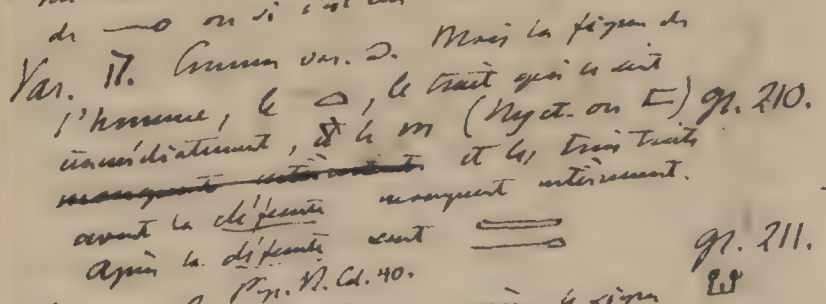 de ou si c'est un
Var. 17. Comme var. 2. Mais la figure de
l'homme, le ⌓, le trait qui le suit
immédiatement, et le m (Ny ct. ou) gr. 210.
manquent entièrement et les trois traits
avant la défunte manquent entièrement.
Après la défunte vient gr. 211.
Pap. N. Cd. 40.
la figure